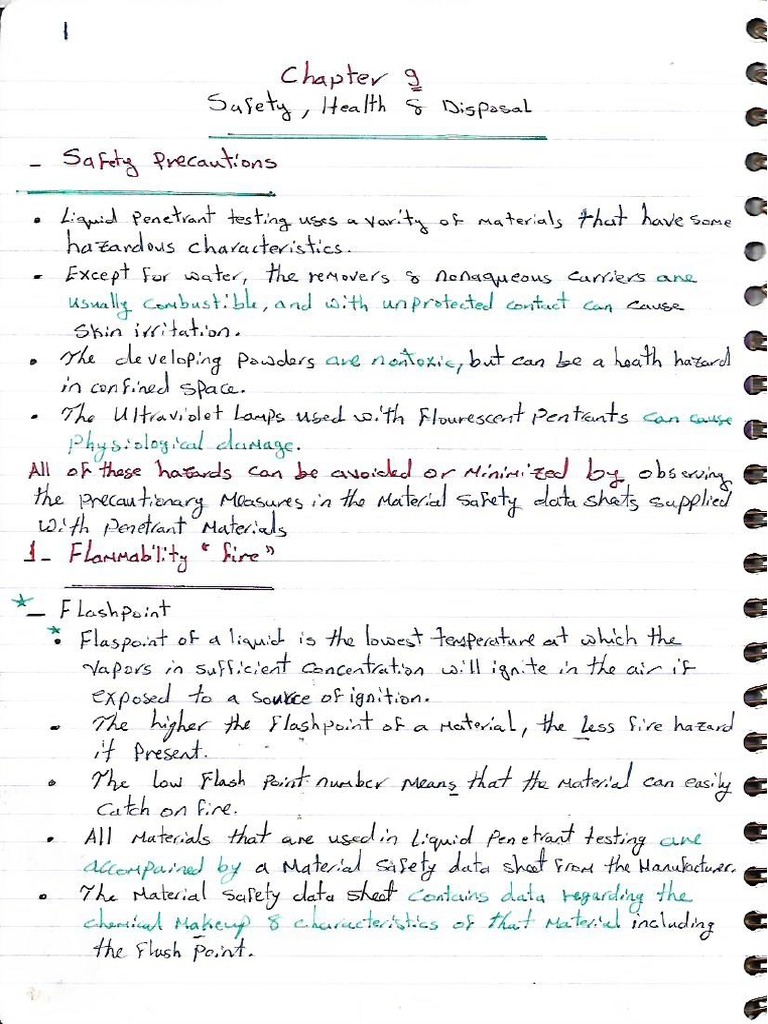 1
Chapter 9
Safety, Health & Disposal
- Safety Precautions
• Liquid Penetrant testing uses a varity of Materials that have some
hazardous characteristics.
• Except for water, the removers & nonaqueous carriers are
usually combustible, and with unprotected contact can cause
skin irritation.
• The developing powders are nontoxic, but can be a heath hazard
in confined space.
• The Ultraviolet Lamps used with Flourescent Pentrants can cause
Physiological damage.
All of these hazards can be avoided or Minimized by observing
the precautionary Measures in the Material Safety data shets supplied
with Penetrant Materials
1- Flammability "fire"
- Flashpoint
• Flaspoint of a liquid is the lowest temperature at which the
vapors in sufficient concentration will ignite in the air if
exposed to a source of ignition.
• The higher the Flashpoint of a Material, the Less fire hazard
it Present.
• The low Flash Point number Means that the Material can easily
Catch on fire.
• All Materials that are used in Liquid Penetrant testing are
accompained by a Material Safety data sheet from the Manufacturer.
• The Material Safety data sheet contains data regarding the
chemical Makeup & characteristics of that Material including
the Flash Point.